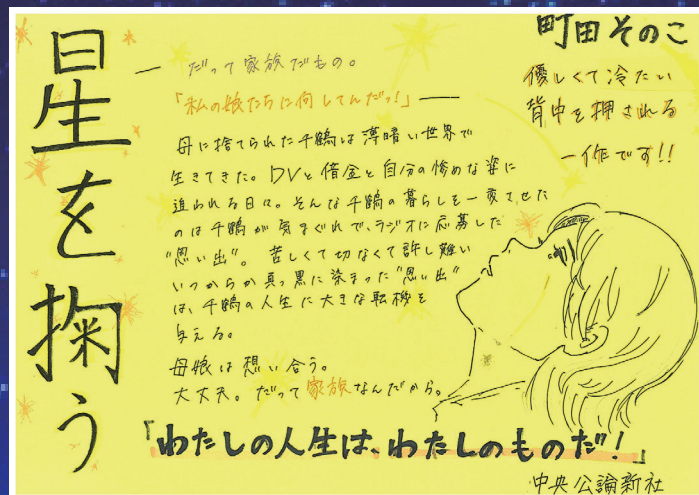 星を掬う
町田そのこ
優しくて冷たい
背中を押される
一作です!!
― だって家族だもの。
「私の娘たちに何してんだっ!」―
母に捨てられた千鶴は薄暗い世界で
生きてきた。DVと借金と自分の惨めな姿に
追われる日々。そんな千鶴の暮らしを一変させた
のは千鶴が気まぐれで、ラジオに応募した
"思い出"。苦しくて切なくて許し難い
いつからか真っ黒に染まった"思い出"
は、千鶴の人生に大きな転機を
与える。
母娘は想い合う。
大丈夫。だって家族なんだから。
「わたしの人生は、わたしのものだ!」
中央公論新社